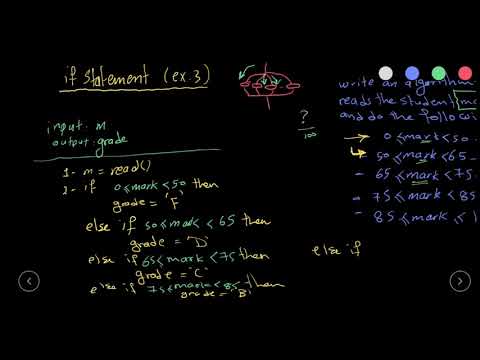 if statement (ex.3)
input: m
output: grade
1- m = read()
2- if 0 ≤ mark < 50 then
grade = 'F'
else if 50 ≤ mark < 65 then
grade = 'D'
else if 65 ≤ mark < 75 then
grade = 'C'
else if 75 ≤ mark < 85 then
grade = 'B'
else if
?
100
write an algorithm
reads the student
and do the
→ 0 ≤ mark < 50
→ 50 ≤ mark < 65
- 65 ≤ mark < 75
- 75 ≤ mark < 85
- 85 ≤ mark